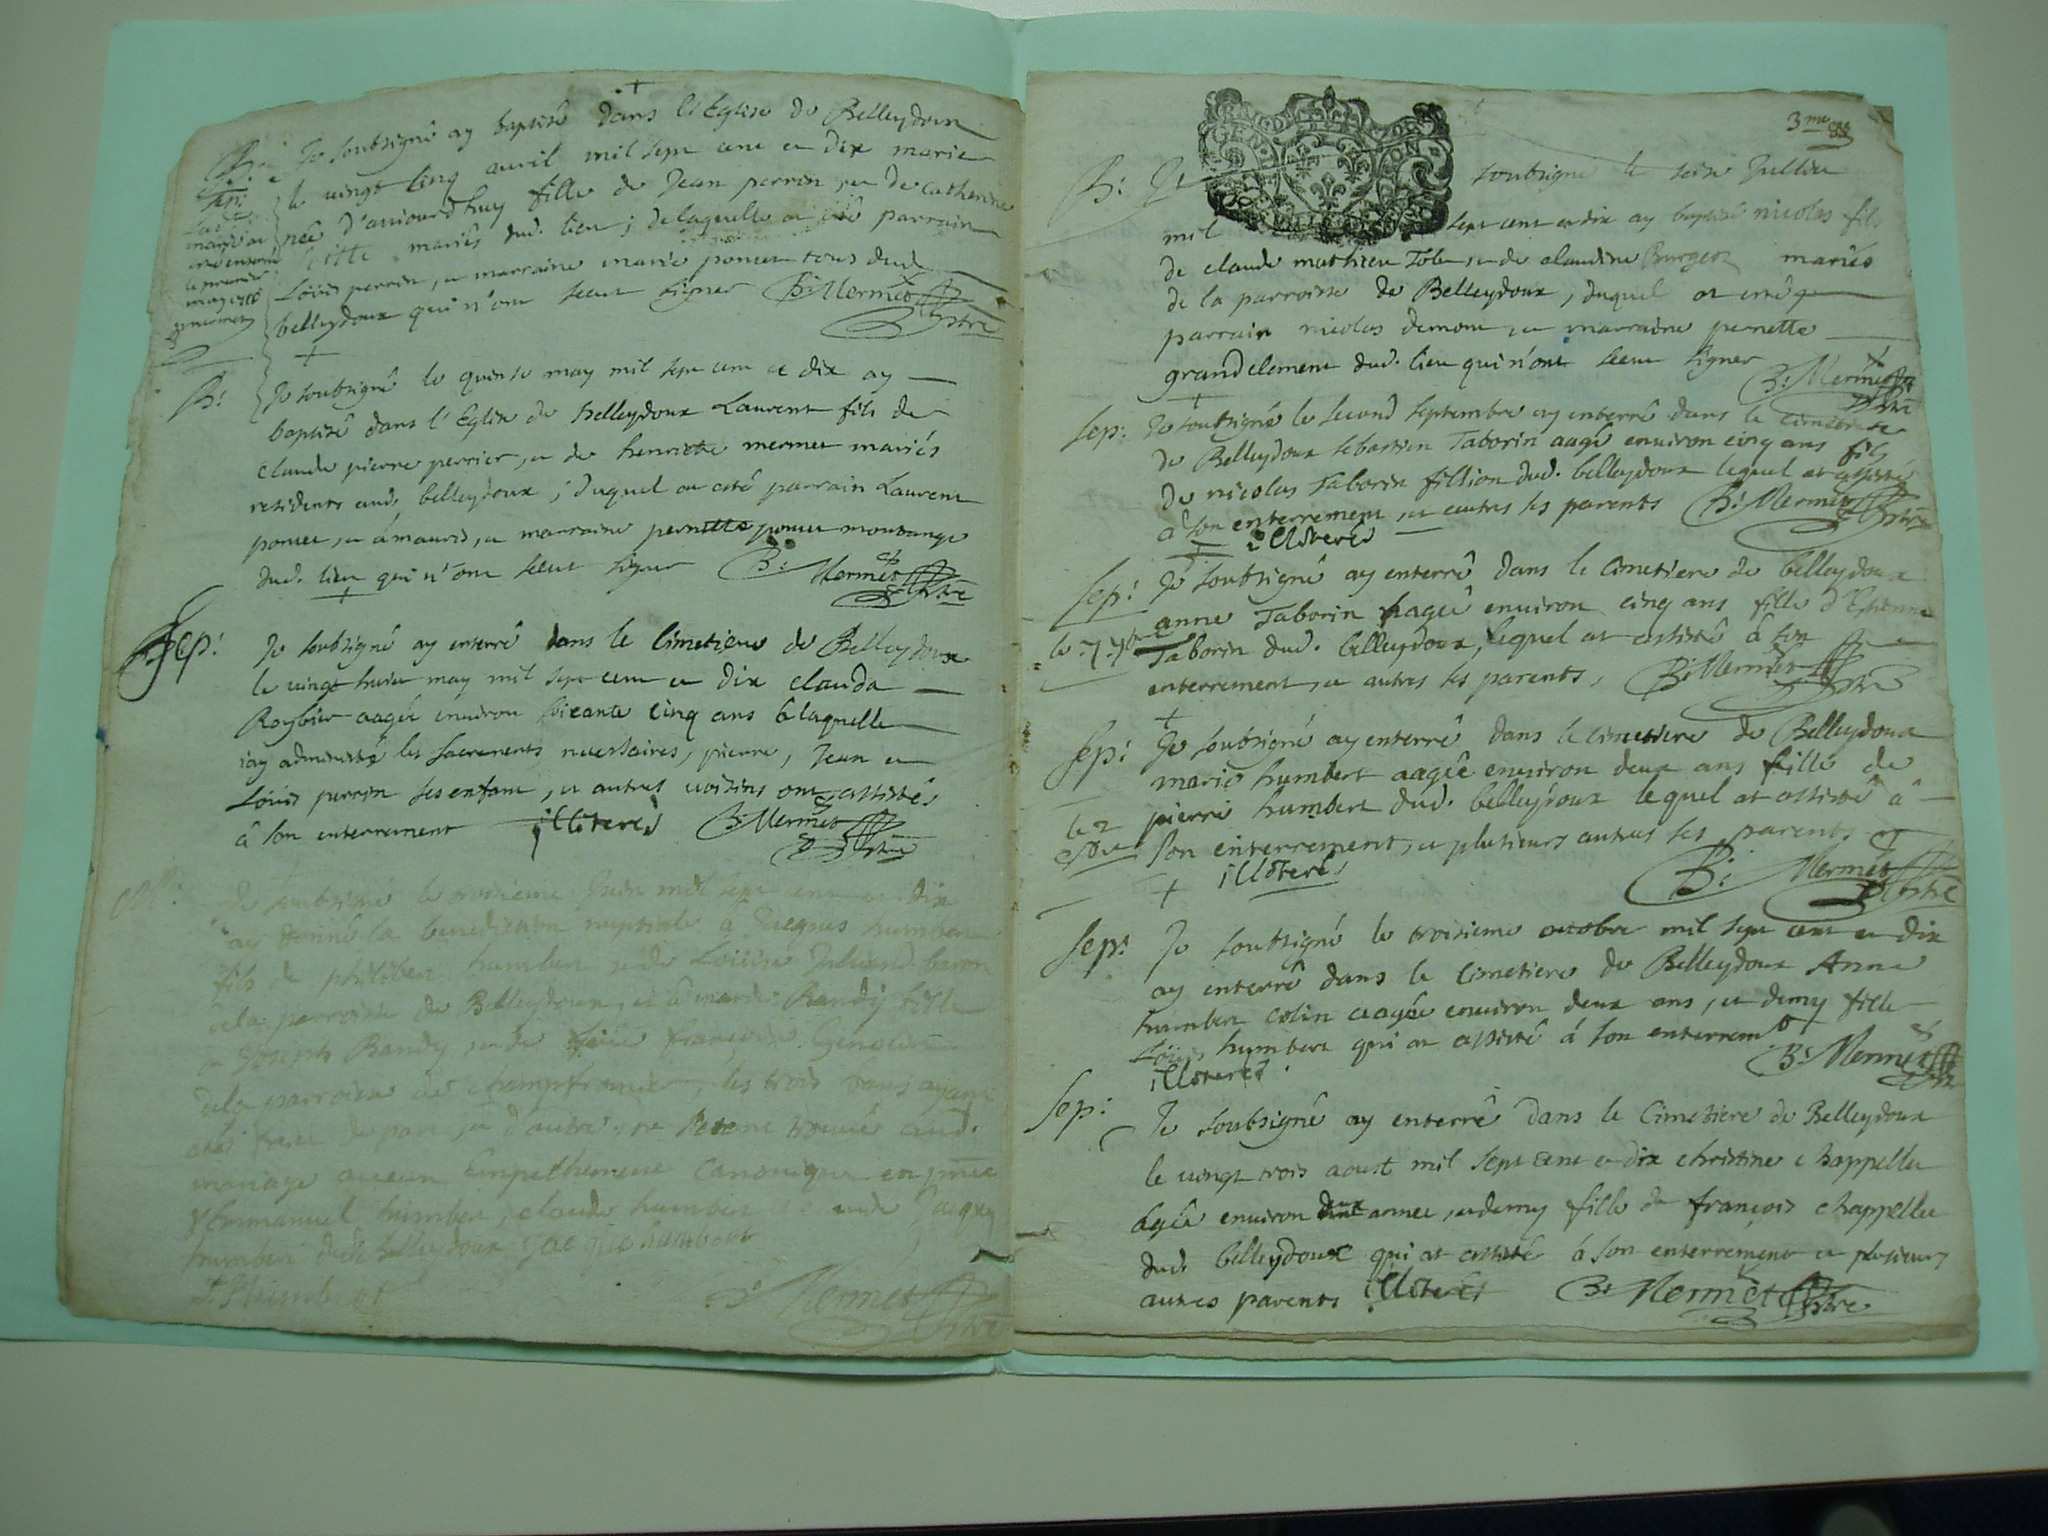 B: Je soubsigné ay baptisé dans l'Eglise de Belleydoux
le vingt cinq avril mil sept cent et dix marie
née d'aujourdhuy fille de Jean perrin, et de Catherine
mariés dud. lieu; de laquelle a esté parrain
Loüis perrin, et marraine marie poncet tous dud.
belleydoux qui n'ont sceut signer B: Mermet ptre
Sep:
B: Je soubsigné le quinse may mil sept cent et dix ay
baptisé dans l'Eglise de Belleydoux Laurent fils de
Claude pierre perrier, et de henriette mermet mariés
residents aud. belleydoux; duquel a esté parrain Laurent
poncet, et marraine pernette poncet montange
dud. lieu qui n'ont sceut signer B: Mermet ptre
Sep: Je soubsigné ay enterré dans le Cimetiere de Belleydoux
le vingt huit may mil sept cent et dix clauda
aagée environ soixante cinq ans à laquelle
iay administré les sacrements necessaires, pierre, Jean et
Loüis perrin ses enfant, et autres voisins ont assistés
à son enterrement illiterés B: Mermet ptre
Je soubsigné le troisieme Juin mil sept cent et dix
ay donné la benediction nuptiale à Jacques humbert
fils de philibert humbert, et de Loüise
de la parroisse de Belleydoux, et à marie Randy fille
de Joseph Randy, et de françoise
de la parroisse de champfromier, les trois bans ayant
estés de part, et d'autre, ne trouvé aud.
mariage aucun empechement canonique en pnce
d'Emmanuel humbert, claude humbert
humbert dud. belleydoux Jacque humbert
B: Mermet ptre
3me
B: Je soubsigné le seise Juillet
mil sept cent et dix ay baptisé nicolas fils
de claude mathieu et de claudine Burgos mariés
de la parroisse de Belleydoux, duquel a esté
parrain nicolas demont, et marraine pernette
grandclement dud. lieu qui n'ont sceut signer B: Mermet ptre
Sep: Je soubsigné le second septembre ay enterré dans le Cimetiere
de Belleydoux sebastien Taborin aagé environ cinq ans fils
de nicolas Taborin fillion dud. belleydoux lequel at assisté
à son enterrement, et autres ses parents B: Mermet ptre
illiterés
Sep: Je soubsigné ay enterré dans le Cimetiere de belleydoux
anne Taborin aagée environ cinq ans fille d'Estienne
le 7 7bre Taborin dud. belleydoux, lequel at assisté à son
enterrement, et autres ses parents, B: Mermet ptre
Sep: Je soubsigné ay enterré dans le cimetiere de Belleydoux
marie humbert aagée environ deux ans fille de
le 2 pierre humbert dud. belleydoux lequel at assisté à
son enterrement, et plusieurs autres ses parents
illiterés B: Mermet ptre
Sep: Je soubsigné le troisieme octobre mil sept cent et dix
ay enterré dans le Cimetiere de Belleydoux Anne
humbert colin aagée environ deux ans, et demy fille
Loüis humbert qui at assisté à son enterremt
illiterés B: Mermet ptre
Sep: Je soubsigné ay enterré dans le Cimetiere de Belleydoux
le vingt trois aoust mil sept cent et dix christine chappellu
agée environ deux année, et demy fille de françois chappellu
dud. belleydoux qui at assisté à son enterrement et plusieurs
autres parents illiterés B: Mermet ptre